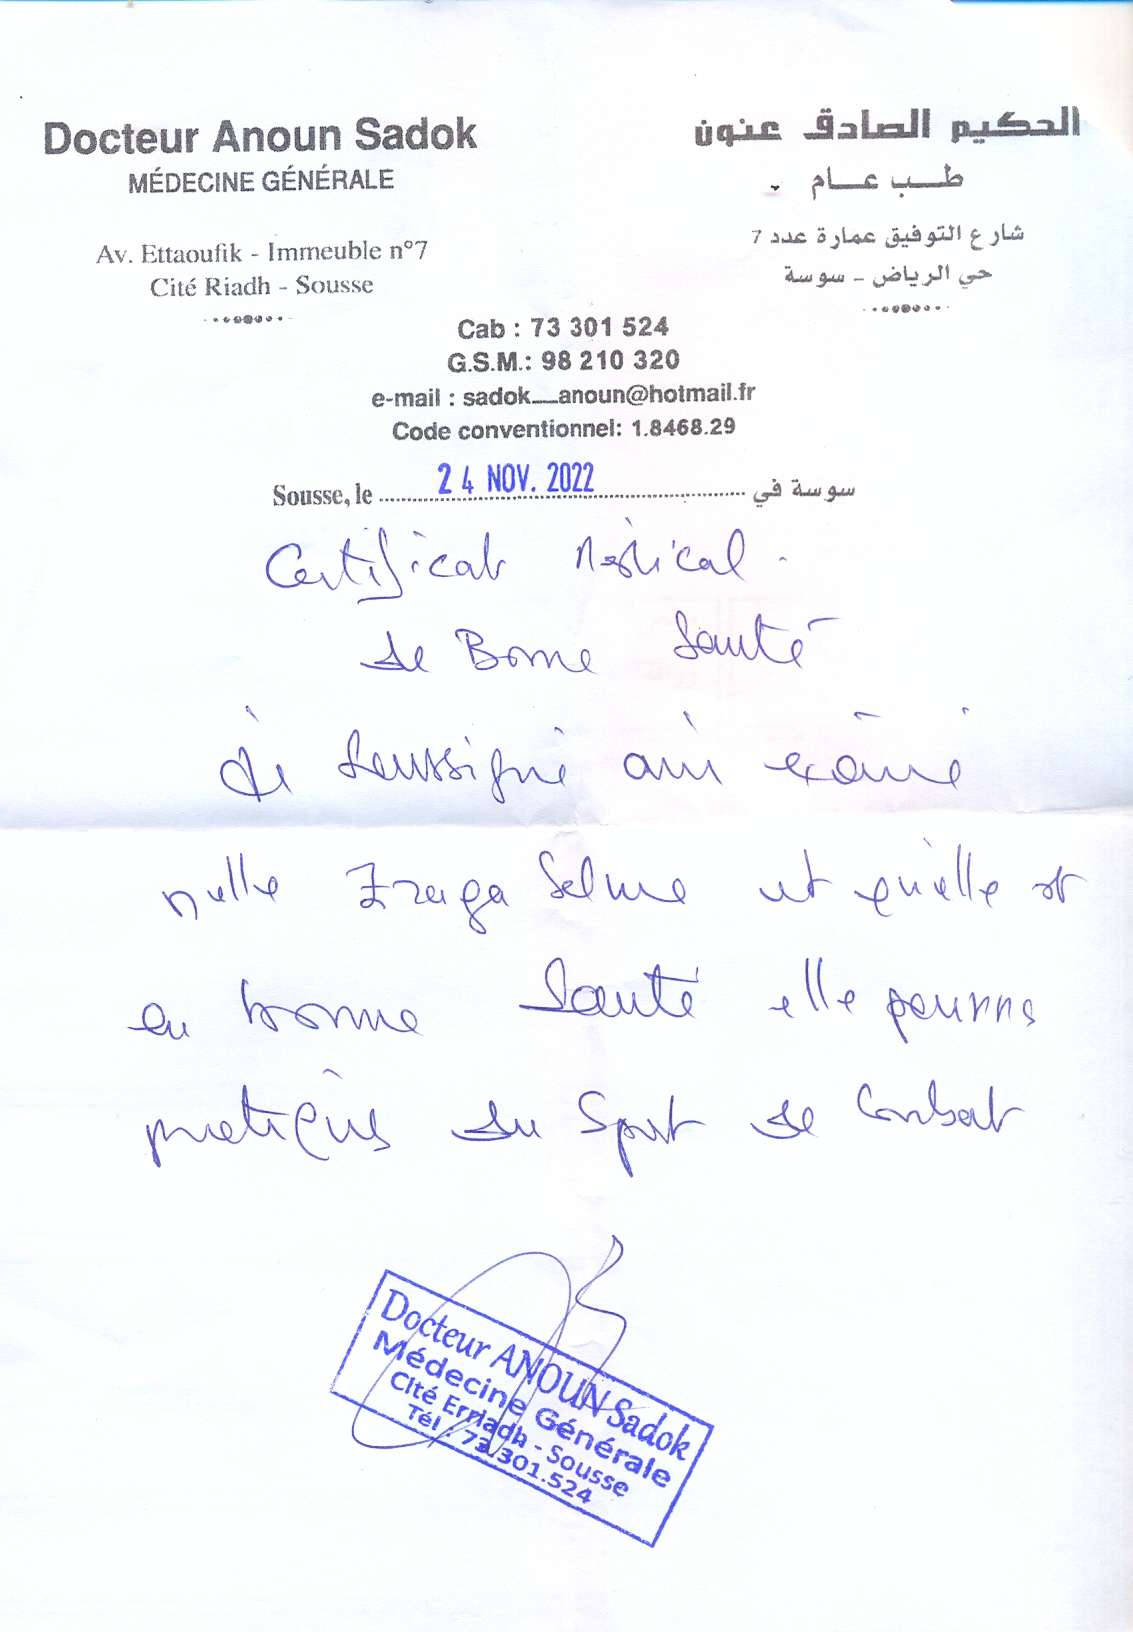 Docteur Anoun Sadok
MÉDECINE GÉNÉRALE
Av. Ettaoufik - Immeuble n°7
Cité Riadh - Sousse
الحكيم الصادق عنون
طب عام
شارع التوفيق عمارة عدد 7
حي الرياض - سوسة
Cab : 73 301 524
G.S.M.: 98 210 320
e-mail : sadok__anoun@hotmail.fr
Code conventionnel: 1.8468.29
Sousse, le 24 NOV. 2022 سوسة في
Certificat Médical
de Bonne Santé
Je Soussigné avoir examiné
melle Selme et qu'elle est
en bonne Santé elle pourra
pratiquer du Sport de Combat
Docteur ANOUN Sadok
Médecine Générale
Cité Erriadh - Sousse
Tél : 73.301.524